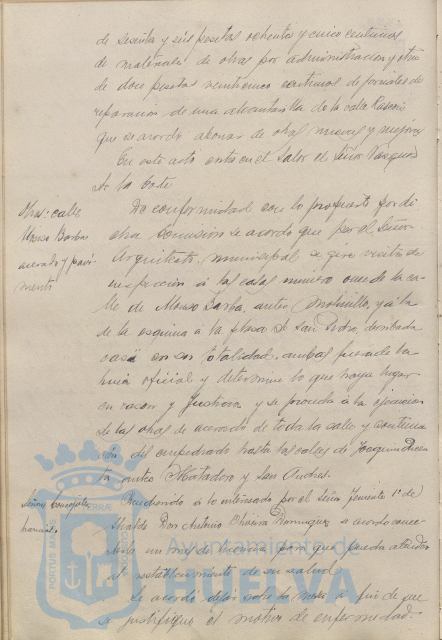 de sesenta y seis pesetas ochenta y cinco centimos
de materiales de obras por administracion y otra
de doce pesetas veinticinco centimos de jornales de
reparacion de una alcantarilla de la calle Rascon
que se acordo abonar de obras nuevas y mejoras
En este acto entra en el Salon el Señor Vazquez
de la Corte
Obras: calle
Alonso Barba
acerado y pavi-
mento
De conformidad con lo propuesto por di
cha Comision se acordo que por el Señor
Arquitecto municipal se gire visita de
inspeccion á las casas numero once de la ca-
lle de Alonso Barba, antes Molinillo, y á la
de la esquina á la plaza de San Pedro, derribada
casi en su totalidad, ambas fuera de la
linea oficial y determine lo que haya lugar
en razon y Justicia y se proceda á la ejecucion
de las obras de acerado de toda la calle y continua
cion del empedrado hasta las calles de Joaquin Dicen
ta antes Matadero y San Andres.
Señores Concejales
Accediendo á lo interesado por el Señor Teniente 1º de
Alcalde Don Antonio Dominguez se acordo conce-
derle un mes de licencia para que pueda atender
al restablecimiento de su salud.
Se acordo dejar sobre la mesa á fin de que
se justifique el motivo de enfermedad.
PORTUS MARIS
TERRAE
Ayuntamiento de
HUELVA